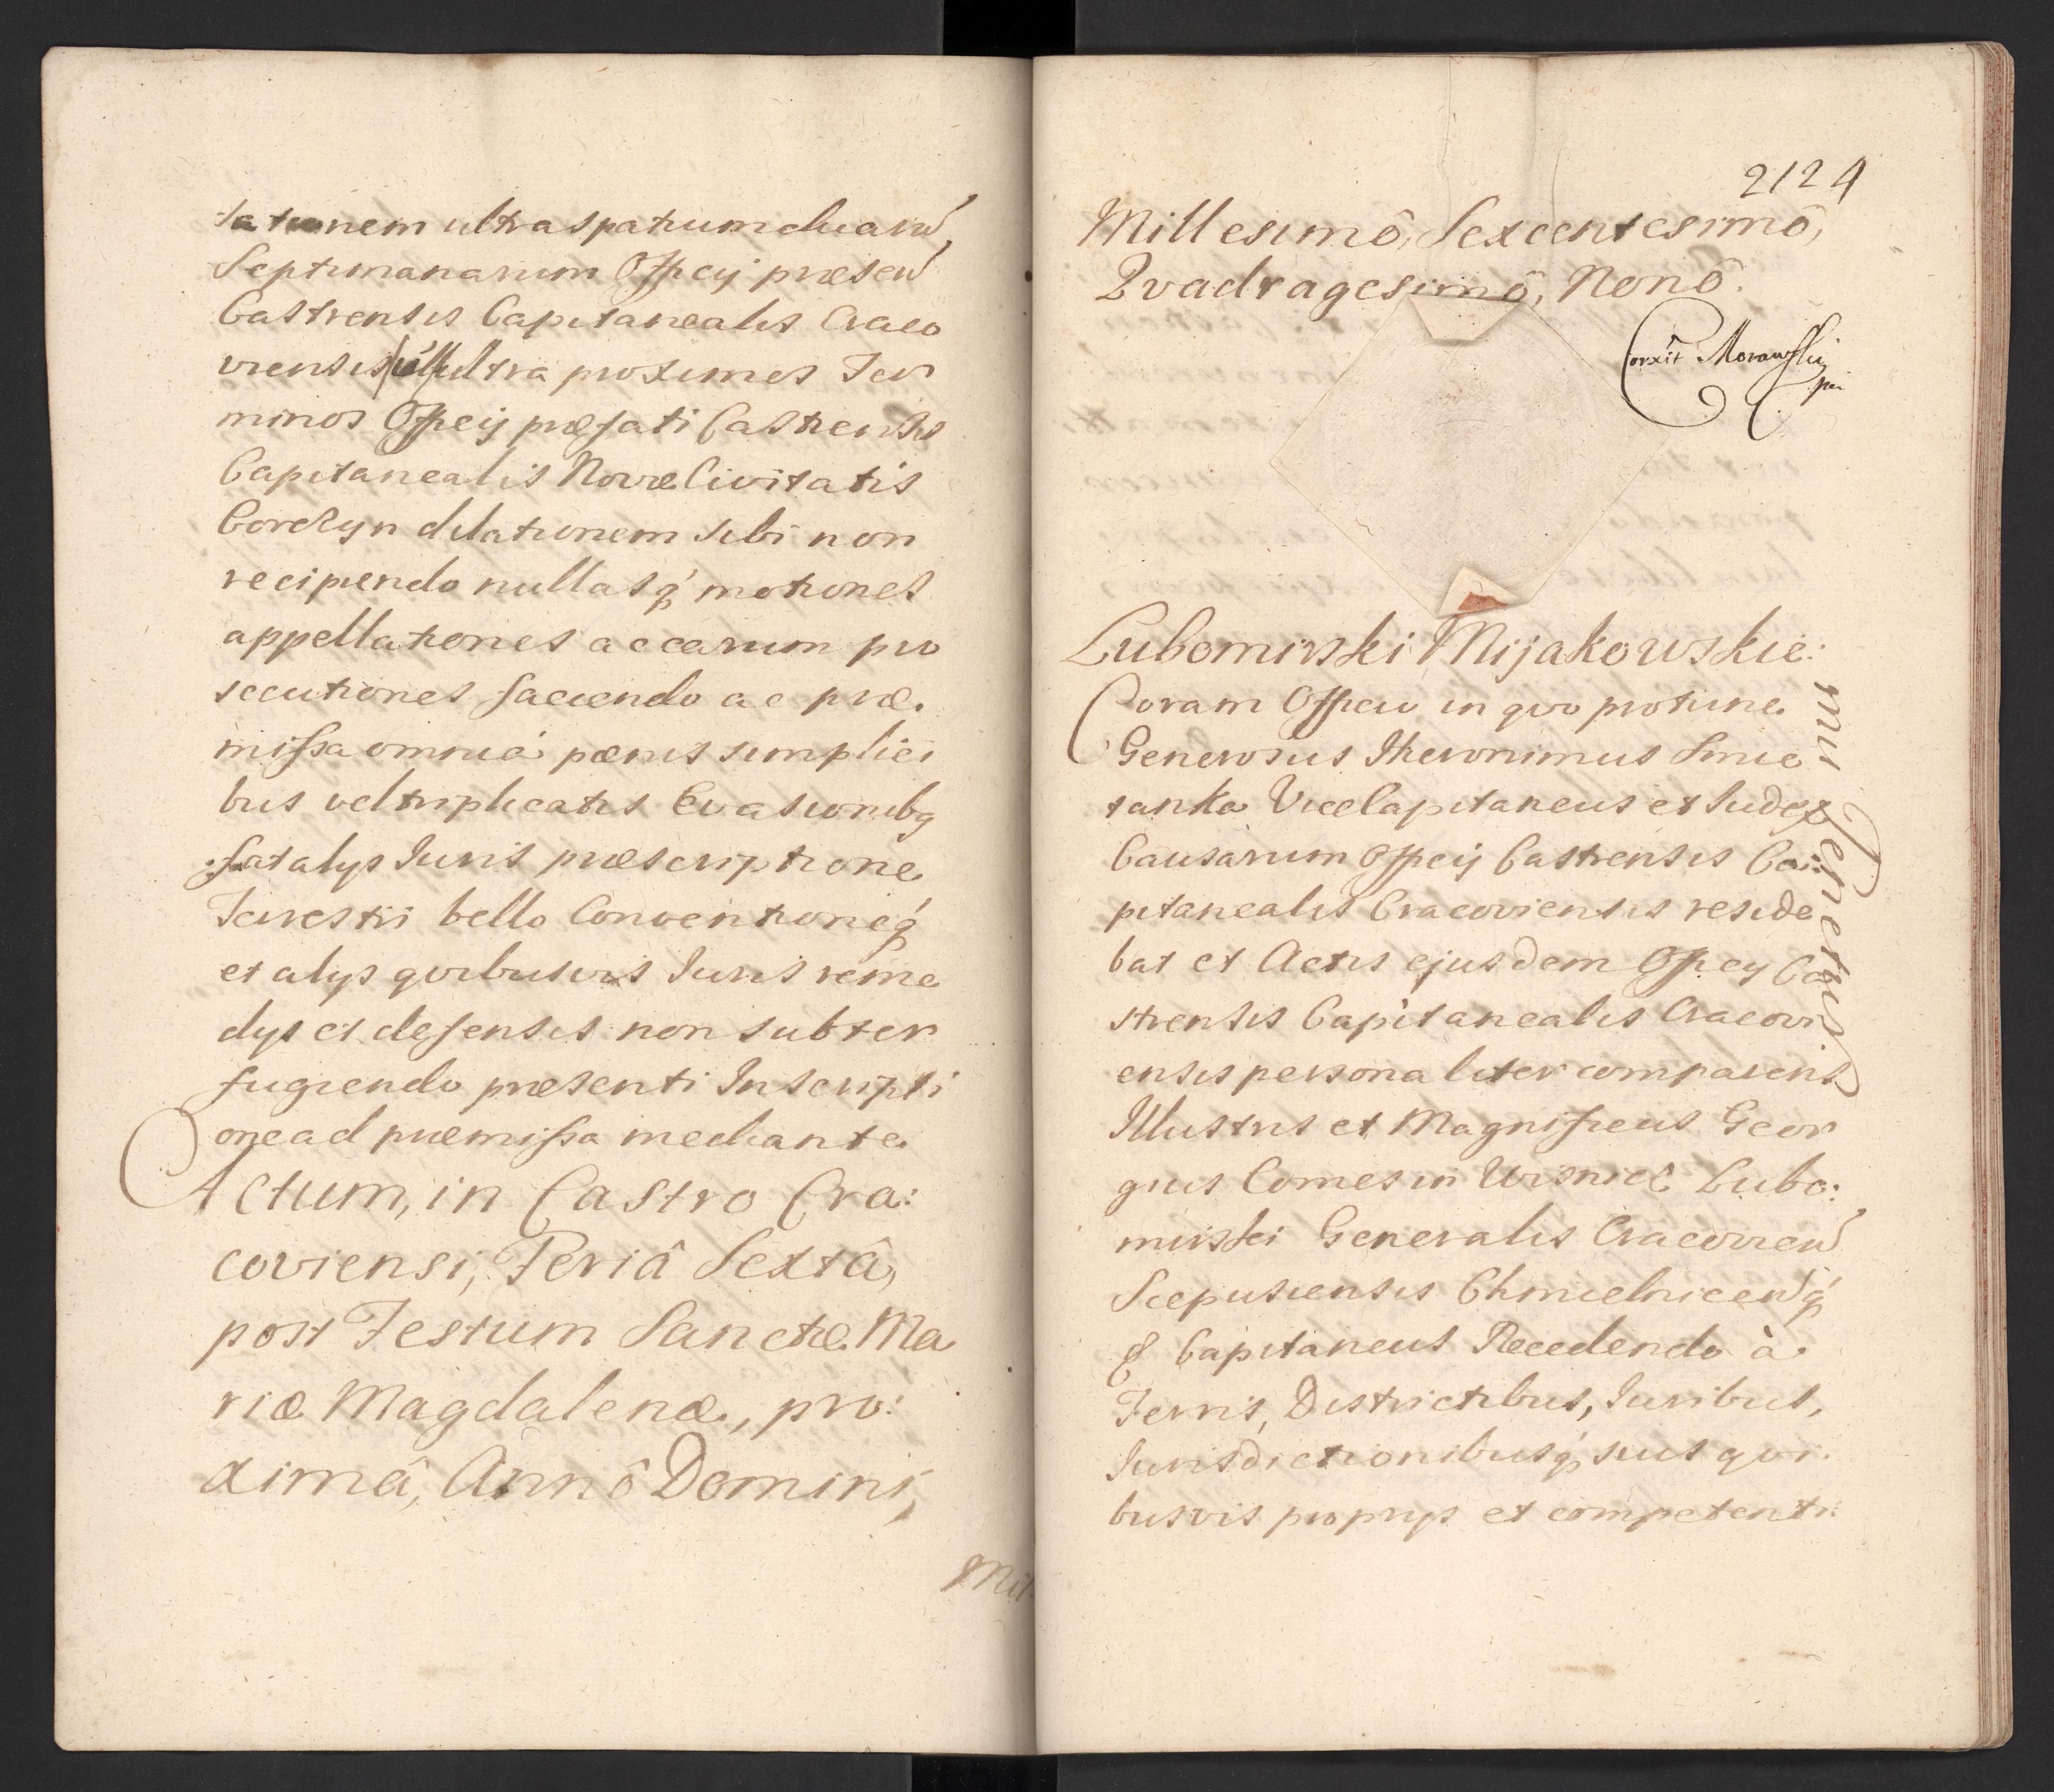 tationem ultra spatium duarū
Septimanarum Officij præsen
Castrensis Capitanealis Craco
viensis ultra proximos Ter
minos Officij præfati Castrensis
Capitanealis Novæ Civitatis
Korczyn dilationem sibi non
recipiendo nullasq́ motiones
appellationes ac earum pro
secutiones faciendo ac præ
missa omnia pænis simplici
bus vel triplicatis Evasionibq
fatalys Iuris præscriptione
Terrestri bello Conventioneq́
et alys qvibusvis Iuris reme
dys et defensis non subter
fugiendo præsenti Inscripti
one ad præmissa mediante
Actum, in Castro Cra:
coviensi, Feriâ Sextâ,
post Festum Sanctæ Ma
riæ Magdalenæ, pro:
ximâ, Annô Domini,
Mil
2124
Millesimô, Sexcentesimô,
Qvadragesimô, Nonô.
Corxit Morawski
mpi
Lubomirski Mijakowskie:
mu Tenetur
Coram Officio in qvo protunc
Generosus Hieronimus Smie
tanka ViceCapitaneus et Iudex
Causarum Officij Castrensis Ca:
pitanealis Cracoviensis reside
bat et Actis ejusdem Officij Ca
strensis Capitanealis Cracovi
ensis personaliter comparens
Illustris et Magnificus Geor
gius Comes in Wisnicz Lubo:
mirski Generalis Cracovien
Scepusiensis Chmielnicenq́
& Capitaneus Recedendo à
Terris, Districtibus, Iuribus,
Iurisdictionibusq́ suis qvi
busvis proprys et competenti: